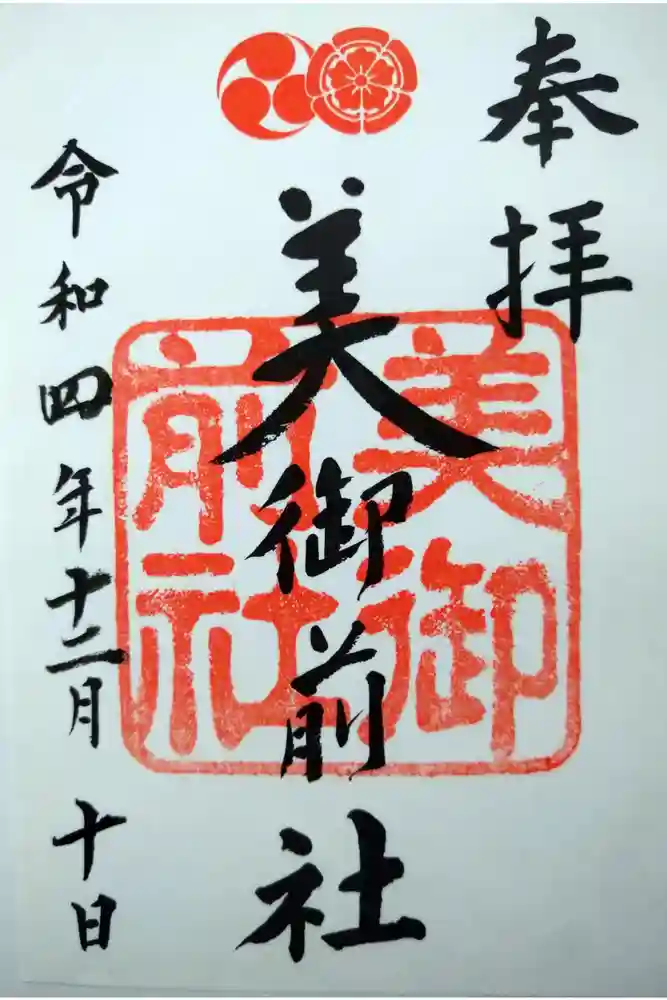 奉拝
美御前社
美御前社
令和四年十二月十日